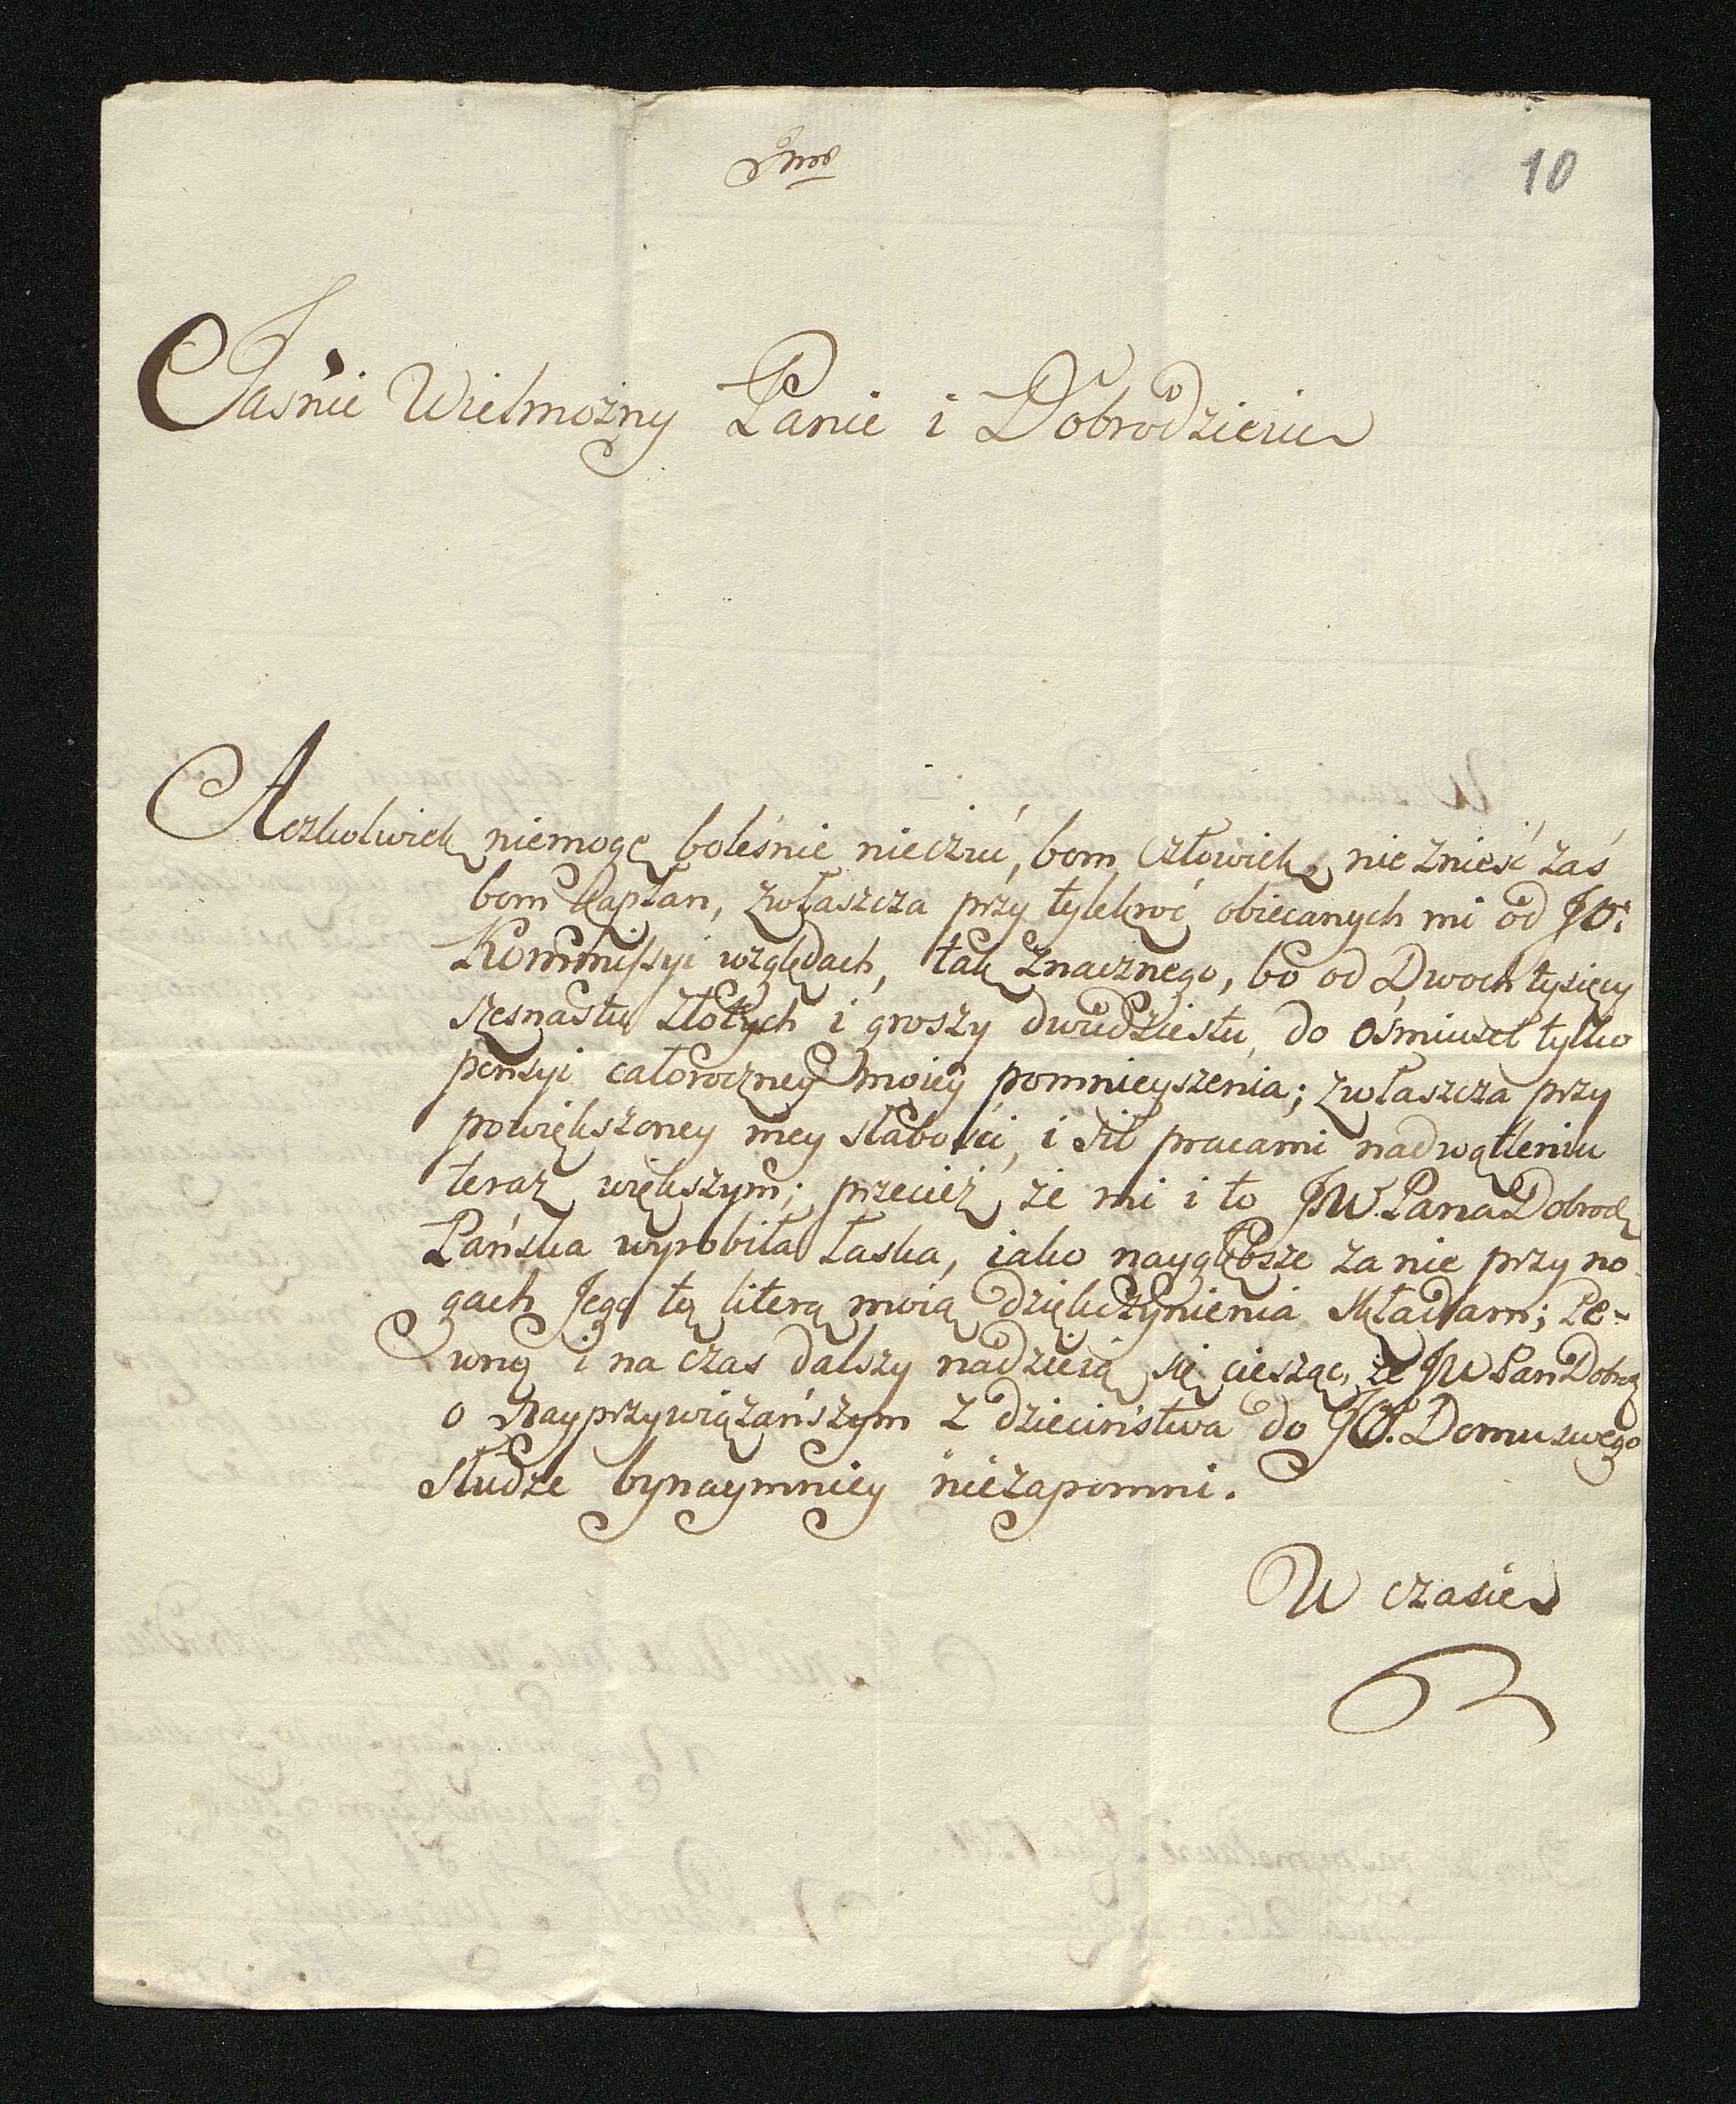 10
Jaśnie Wielmożny Panie i Dobrodzieiu
Aczkolwiek niemogę boleśnie nieczuć, bom człowiek, nie znieść zaś
bom Kapłan, zwłaszcza przy tylekroć obiecanych mi od JO:
Kommissyi względach, tak znacznego, bo od Dwoch tysięcy
szesnastu złotych i groszy dwudziestu, do ośmiuset tylko
pensyi całoroczney moiey pomnieyszenia; zwłaszcza przy
powiększoney mey słabości, i sił pracami nadwątleniu
teraz większym; przecież że mi i to JW. Pana Dobrodz
Pańska wyrobiła łaska, iako naygłębsze za nie przy no-
gach Jego tą literą moią dziękczynienia składam; Pe-
wną i na czas dalszy nadzieią się ciesząc, że JW Pan Dobrodz
o Nayprzywiązańszym z dzieciństwa do JO. Domu swego
słudze bynaymniey niezapomni.
W czasie